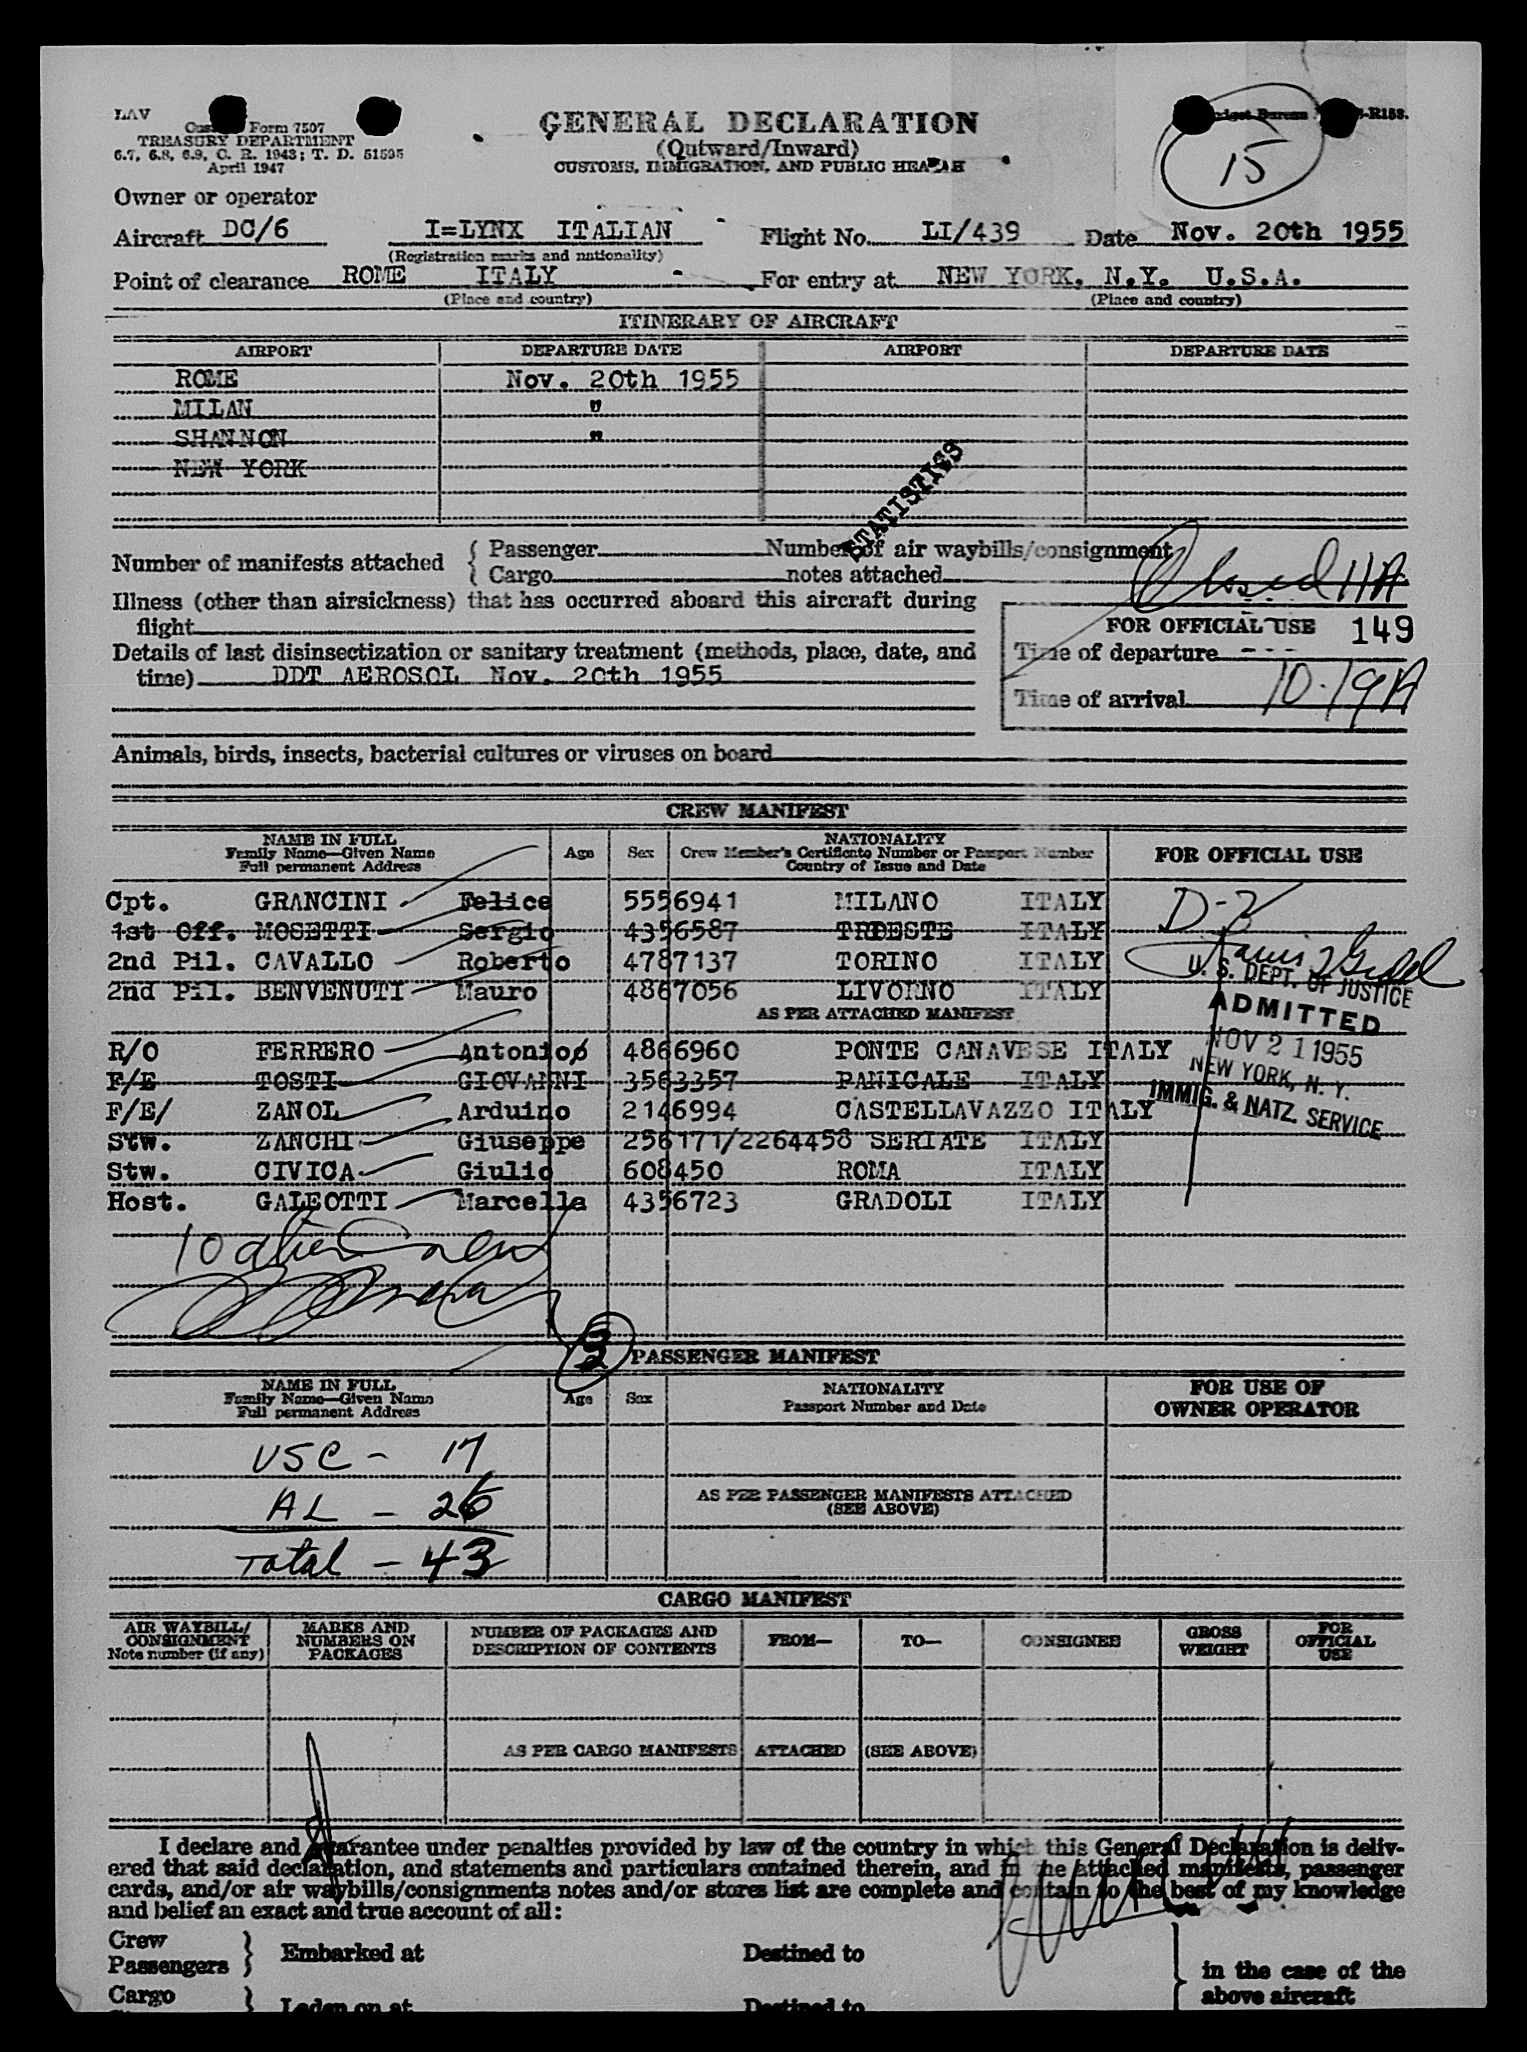 LAV
Form 7507
TREASURY DEPARTMENT
6.7, 6.8, 6.9, C. R. 1943; T. D. 51595
April 1947
GENERAL DECLARATION
(Outward/Inward)
CUSTOMS, IMMIGRATION, AND PUBLIC HEALTH
Budget Bureau -R153.
15
Owner or operator
Aircraft DC/6 I=LYNX ITALIAN Flight No. LI/439 Date Nov. 20th 1955
(Registration marks and nationality)
Point of clearance ROME ITALY For entry at NEW YORK, N.Y. U.S.A.
(Place and country) (Place and country)
ITINERARY OF AIRCRAFT
AIRPORT DEPARTURE DATE AIRPORT DEPARTURE DATE
ROME Nov. 20th 1955
MILAN "
SHANNON "
NEW YORK
STATISTICS
Number of manifests attached { Passenger Number of air waybills/consignment
Cargo notes attached
Illness (other than airsickness) that has occurred aboard this aircraft during
flight
FOR OFFICIAL USE 149
Details of last disinsectization or sanitary treatment (methods, place, date, and
time) DDT AEROSOL Nov. 20th 1955
Time of departure - - -
Time of arrival 10.19A
Animals, birds, insects, bacterial cultures or viruses on board
CREW MANIFEST
NAME IN FULL
Family Name—Given Name
Full permanent Address
Age
Sex
NATIONALITY
Crew Member's Certificate Number or Passport Number
Country of Issue and Date
FOR OFFICIAL USE
Cpt. GRANCINI Felice 5556941 MILANO ITALY
1st Off. MOSETTI Sergio 4356587 TRIESTE ITALY
2nd Pil. CAVALLO Roberto 4787137 TORINO ITALY
2nd Pil. BENVENUTI Mauro 4867056 LIVORNO ITALY
AS PER ATTACHED MANIFEST
R/O FERRERO Antonio 4866960 PONTE CANAVESE ITALY
F/E TOSTI GIOVANNI 3563357 PANICALE ITALY
F/E/ ZANOL Arduino 2146994 CASTELLAVAZZO ITALY
Stw. ZANCHI Giuseppe 256171/2264458 SERIATE ITALY
Stw. CIVICA Giulio 608450 ROMA ITALY
Host. GALEOTTI Marcella 4356723 GRADOLI ITALY
U. S. DEPT. OF JUSTICE
ADMITTED
NOV 21 1955
NEW YORK, N. Y.
IMMIG. & NATZ. SERVICE
10 alien
3
PASSENGER MANIFEST
NAME IN FULL
Family Name—Given Name
Full permanent Address
Age
Sex
NATIONALITY
Passport Number and Date
FOR USE OF
OWNER OPERATOR
USC - 17
AL - 26
Total - 43
AS PER PASSENGER MANIFESTS ATTACHED
(SEE ABOVE)
CARGO MANIFEST
AIR WAYBILL/
CONSIGNMENT
Note number (if any)
MARKS AND
NUMBERS ON
PACKAGES
NUMBER OF PACKAGES AND
DESCRIPTION OF CONTENTS
FROM—
TO—
CONSIGNEE
GROSS
WEIGHT
FOR
OFFICIAL
USE
AS PER CARGO MANIFESTS ATTACHED (SEE ABOVE)
I declare and guarantee under penalties provided by law of the country in which this General Declaration is deliv-
ered that said declaration, and statements and particulars contained therein, and in the attached manifests, passenger
cards, and/or air waybills/consignments notes and/or stores list are complete and contain to the best of my knowledge
and belief an exact and true account of all:
Crew
Passengers } Embarked at Destined to
Cargo } Laden on at Destined to
in the case of the
above aircraft